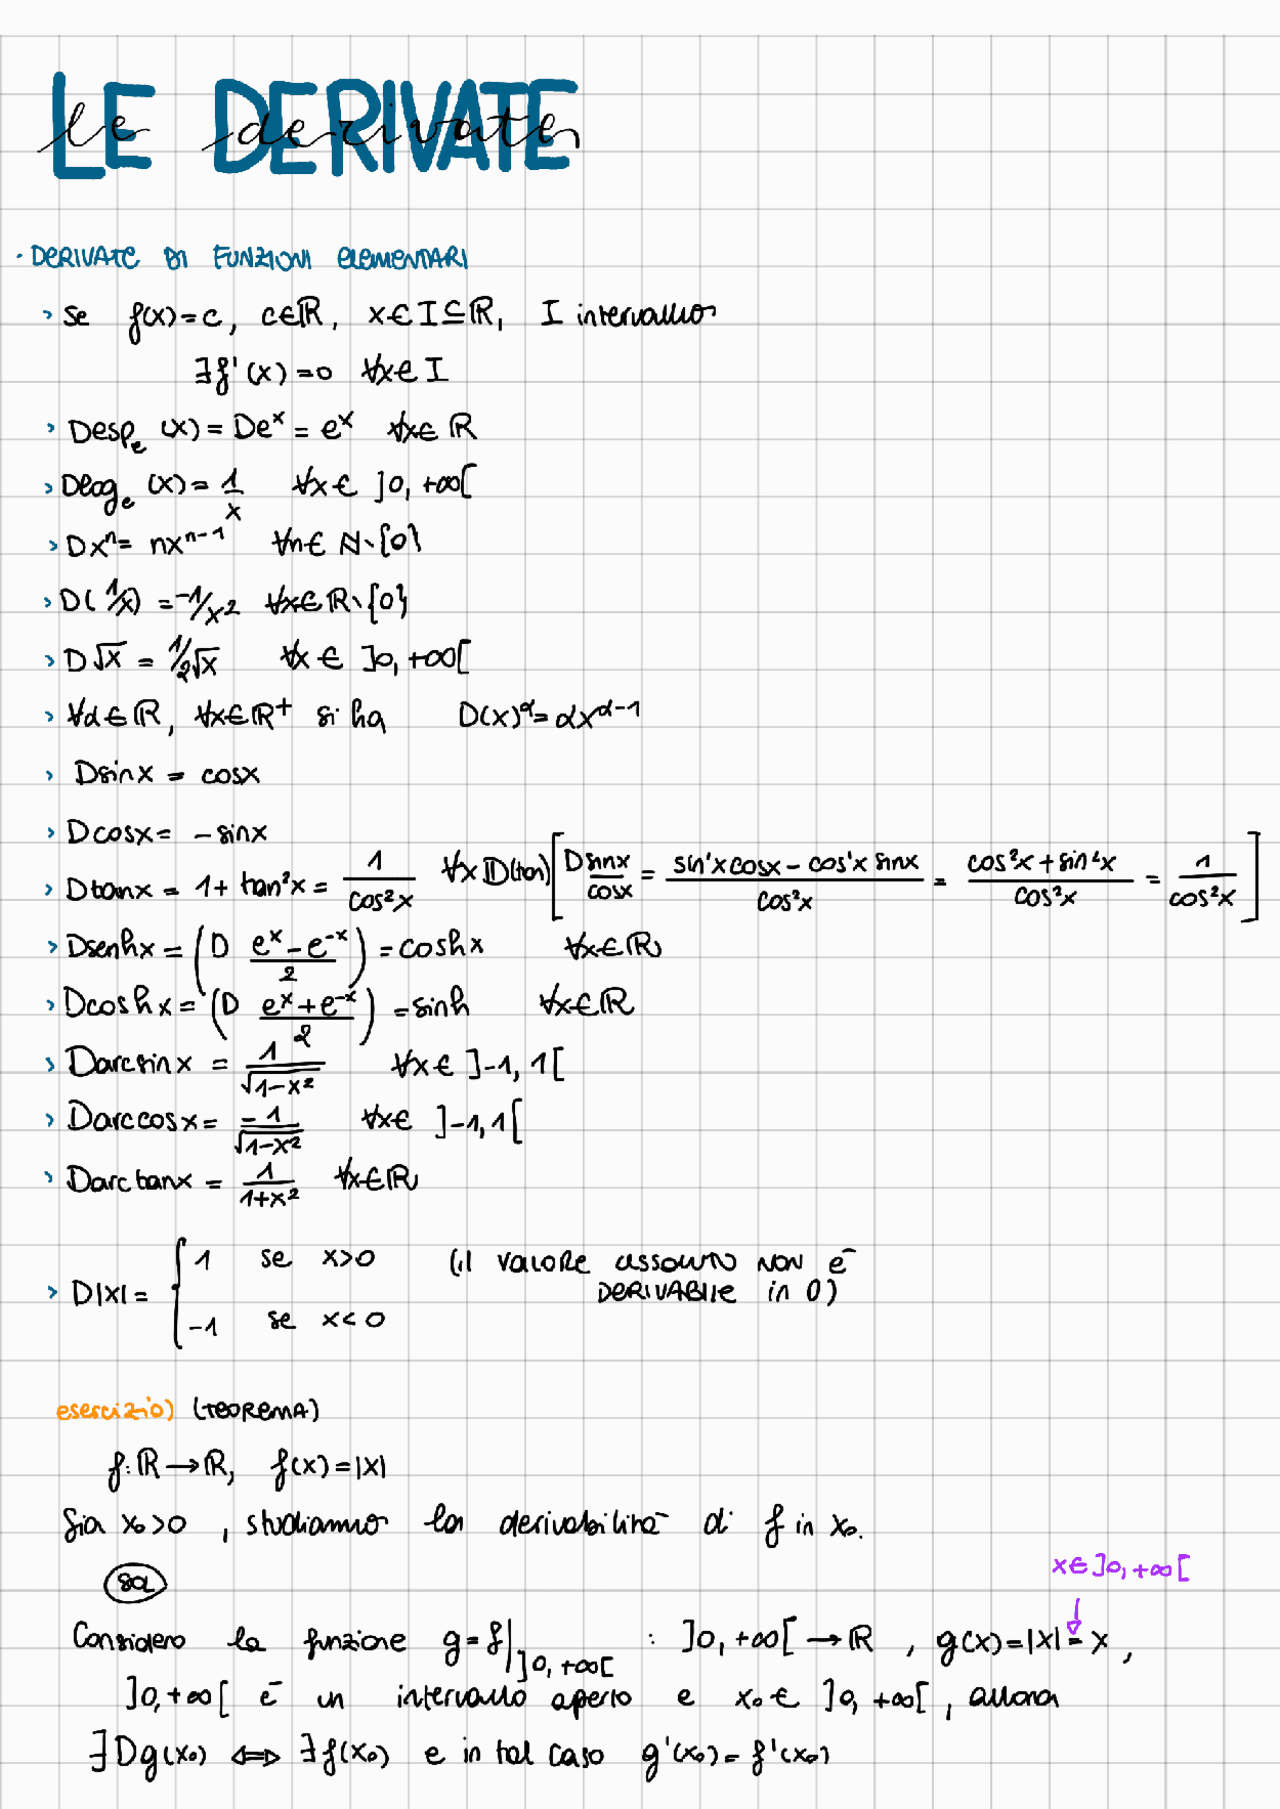 LE DERIVATE
le derivate
· DERIVATE DI FUNZIONI ELEMENTARI
> se f(x)=c, c∈ℝ, x∈I⊆ℝ, I intervallo
∃f'(x)=0 ∀x∈I
> Desp_e (x) = De^x = e^x ∀x∈ℝ
> Dlog_e (x) = 1/x ∀x∈ ]0,+∞[
> Dx^n = nx^(n-1) ∀n∈ℕ\{0}
> D(1/x) = -1/x² ∀x∈ℝ\{0}
> D√x = 1/2√x ∀x∈ ]0,+∞[
> ∀α∈ℝ, ∀x∈ℝ⁺ si ha D(x)^α = αx^(α-1)
> Dsinx = cosx
> Dcosx = -sinx
> Dtanx = 1+tan²x = 1/cos²x ∀x D(tan) [D sinx/cosx = (sin'x cosx - cos'x sinx)/cos²x = (cos²x + sin²x)/cos²x = 1/cos²x]
> Dsenhx = (D (e^x - e^-x)/2) = coshx ∀x∈ℝ
> Dcoshx = (D (e^x + e^-x)/2) = sinh ∀x∈ℝ
> Darcsinx = 1/√(1-x²) ∀x∈ ]-1,1[
> Darccosx = -1/√(1-x²) ∀x∈ ]-1,1[
> Darctanx = 1/(1+x²) ∀x∈ℝ
> D|x| = { 1 se x>0 (il valore assoluto NON è
DERIVABILE in 0)
-1 se x<0
esercizio) (TEOREMA)
f:ℝ→ℝ, f(x)=|x|
Sia x₀>0, studiamo la derivabilità di f in x₀.
sol
x∈]0,+∞[
Considero la funzione g=f|]0,+∞[ : ]0,+∞[→ℝ, g(x)=|x|=x,
]0,+∞[ è un intervallo aperto e x₀∈ ]0,+∞[, allora
∃Dg(x₀) ⟺ ∃f(x₀) e in tal caso g'(x₀)=f'(x₀)